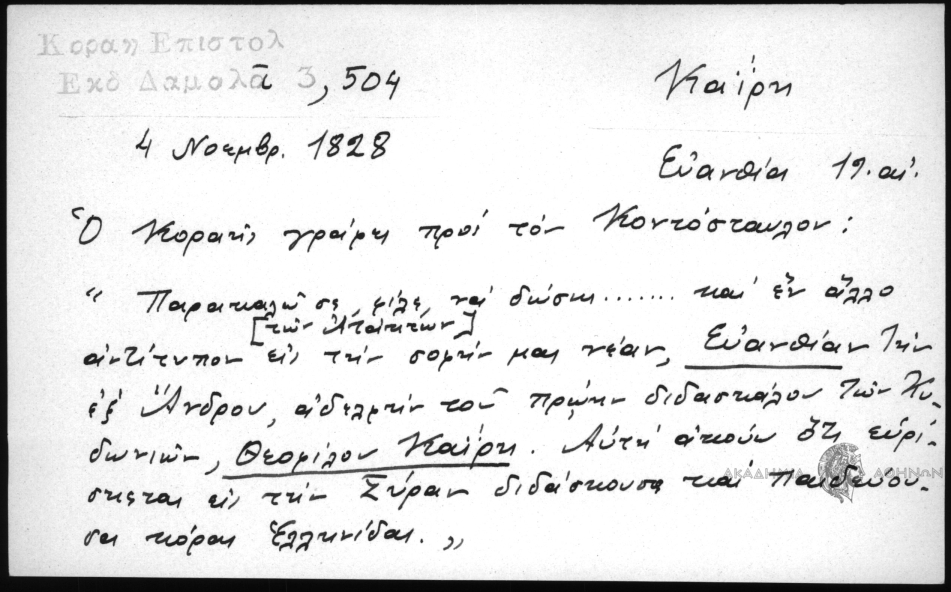 Κοραη Επιστολ
Εκδ Δαμαλᾶ 3, 504
Καΐρη
4 Νοεμβρ. 1828
Εὐανθία 19. αἰ.
Ὁ Κοραῆς γράφει πρὸς τὸν Κοντόσταυλον:
“ Παρακαλῶ σε, φίλε, νὰ δώσῃς ....... καὶ ἓν ἄλλο
[τῶν Ἀτάκτων]
ἀντίτυπον εἰς τὴν σοφήν μας νέαν, Εὐανθίαν τὴν
ἐξ Ἄνδρου, ἀδελφὴν τοῦ πρώην διδασκάλου τῶν Κυ-
δωνιῶν, Θεοφίλου Καΐρη. Αὐτὴ ἀκούω ὅτι εὑρί-
σκεται εἰς τὴν Σύραν διδάσκουσα καὶ παιδεύου-
σα κόρας Ἑλληνίδας. „
ΑΚΑΔΗΜΙΑ ΑΘΗΝΩΝ